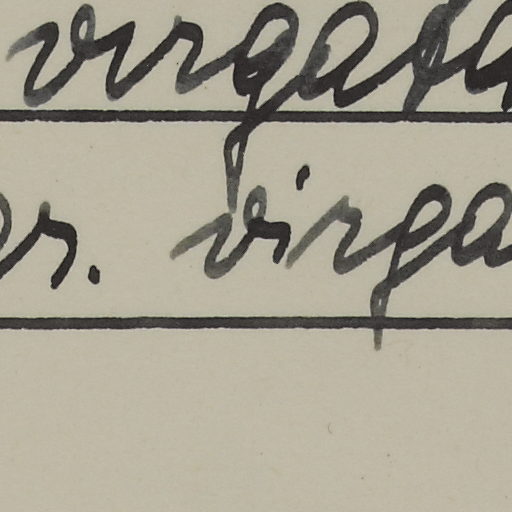 virgata
r. virga